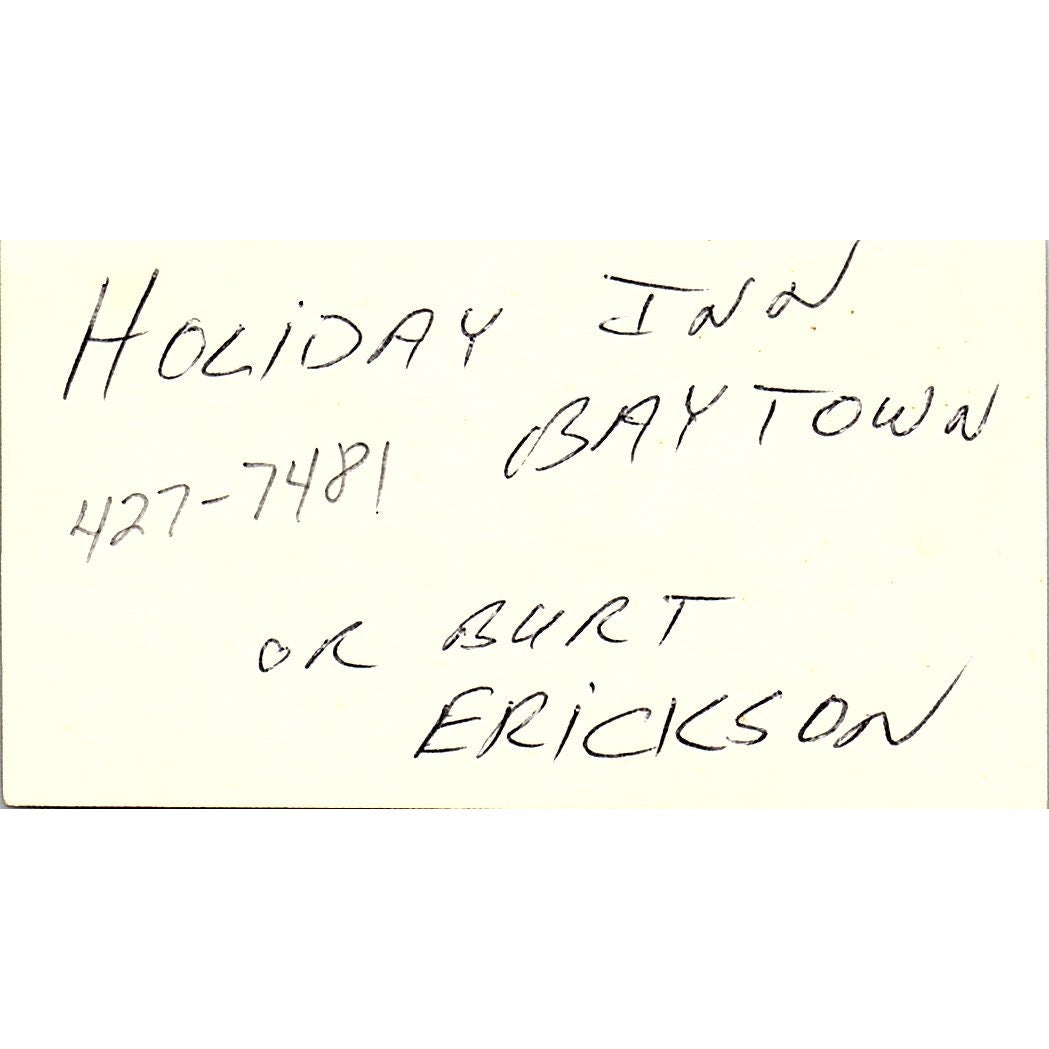 HOLiDAY INN
BAYTOWN
427-7481
OR BURT
ERiCKSON